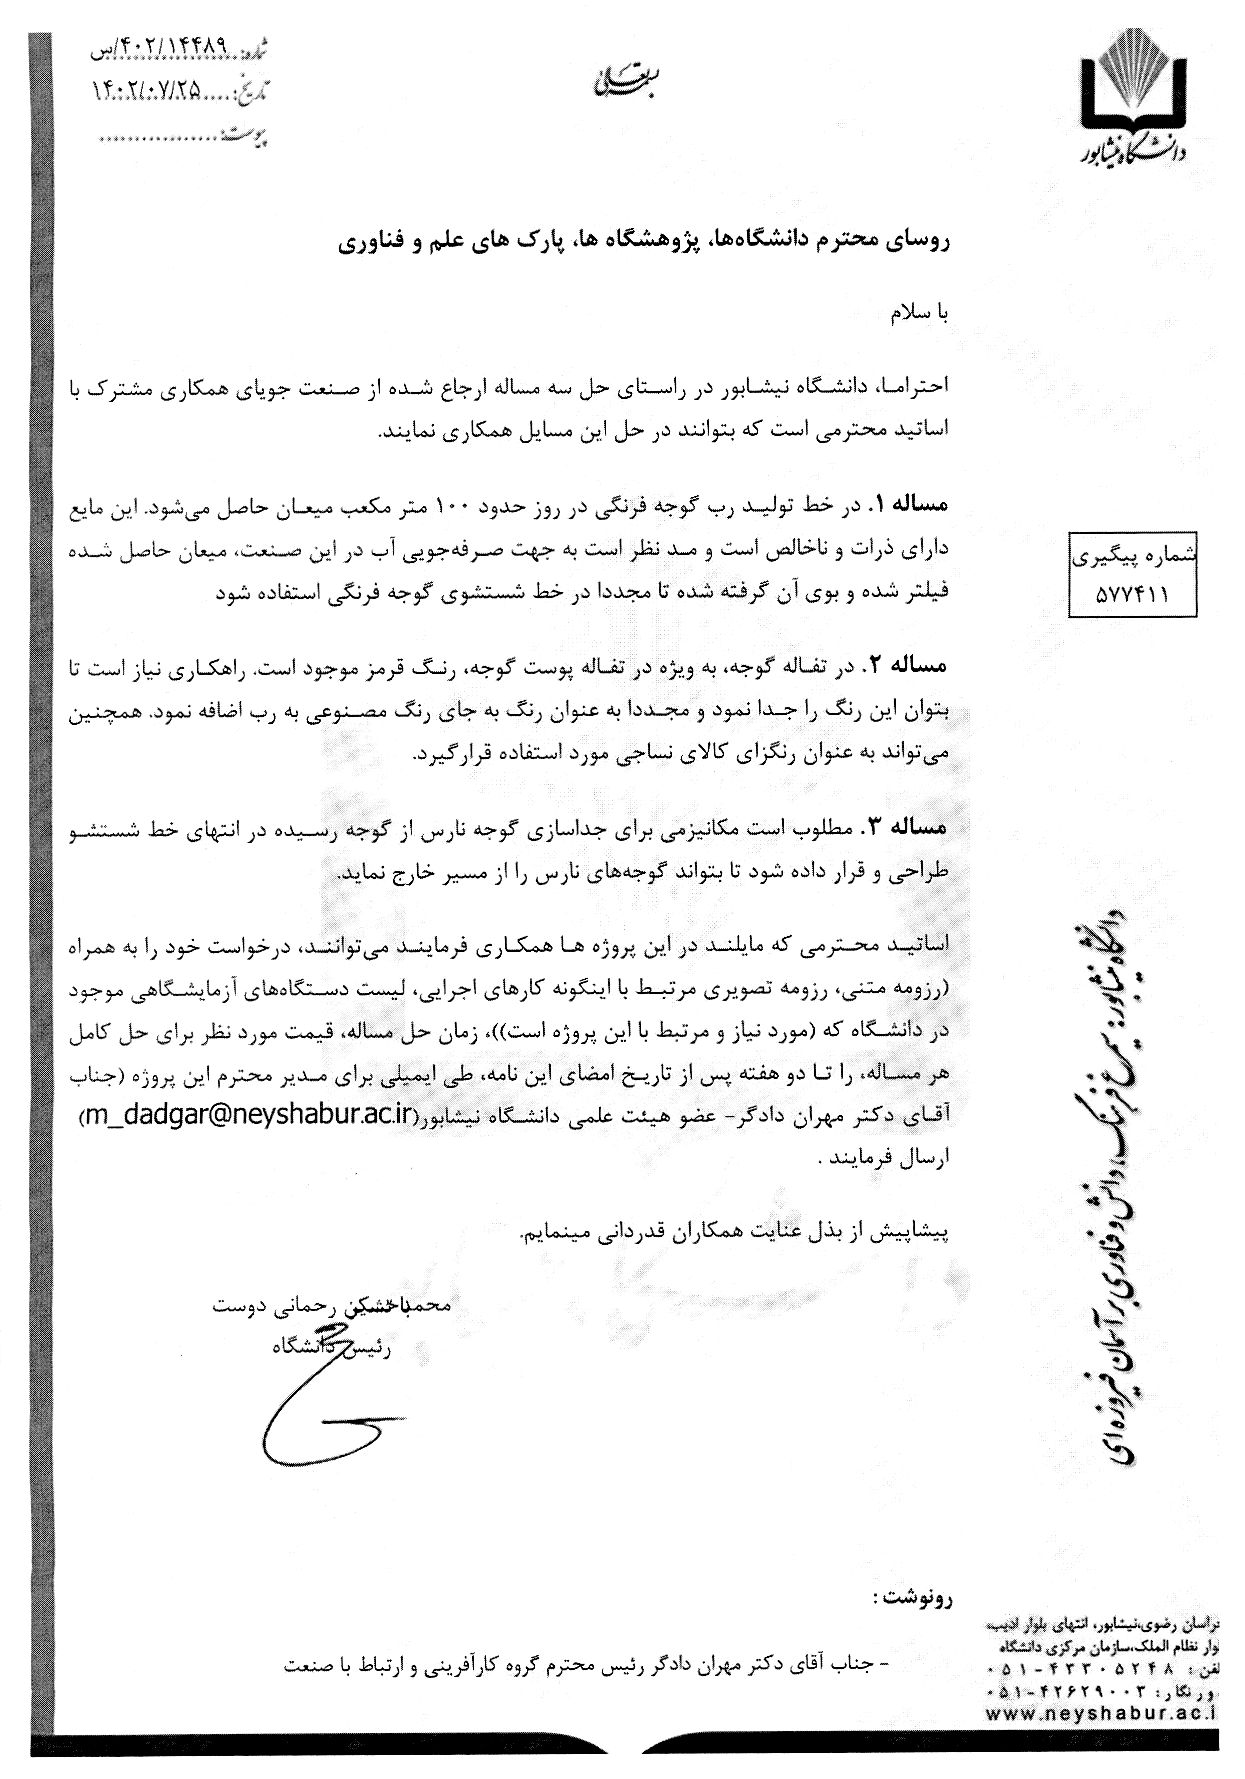 شماره: ۴۰۲/۱۴۴۸۹/س
تاریخ: ۱۴۰۲/۰۷/۲۵
پیوست:
بسمه تعالی
دانشگاه نیشابور
روسای محترم دانشگاه‌ها، پژوهشگاه ها، پارک های علم و فناوری
با سلام
احتراما، دانشگاه نیشابور در راستای حل سه مساله ارجاع شده از صنعت جویای همکاری مشترک با
اساتید محترمی است که بتوانند در حل این مسایل همکاری نمایند.
مساله ۱. در خط تولید رب گوجه فرنگی در روز حدود ۱۰۰ متر مکعب میعان حاصل می‌شود. این مایع
دارای ذرات و ناخالص است و مد نظر است به جهت صرفه‌جویی آب در این صنعت، میعان حاصل شده
فیلتر شده و بوی آن گرفته شده تا مجددا در خط شستشوی گوجه فرنگی استفاده شود
مساله ۲. در تفاله گوجه، به ویژه در تفاله پوست گوجه، رنگ قرمز موجود است. راهکاری نیاز است تا
بتوان این رنگ را جدا نمود و مجددا به عنوان رنگ به جای رنگ مصنوعی به رب اضافه نمود. همچنین
می‌تواند به عنوان رنگزای کالای نساجی مورد استفاده قرارگیرد.
مساله ۳. مطلوب است مکانیزمی برای جداسازی گوجه نارس از گوجه رسیده در انتهای خط شستشو
طراحی و قرار داده شود تا بتواند گوجه‌های نارس را از مسیر خارج نماید.
اساتید محترمی که مایلند در این پروژه ها همکاری فرمایند می‌توانند، درخواست خود را به همراه
(رزومه متنی، رزومه تصویری مرتبط با اینگونه کارهای اجرایی، لیست دستگاه‌های آزمایشگاهی موجود
در دانشگاه که (مورد نیاز و مرتبط با این پروژه است))، زمان حل مساله، قیمت مورد نظر برای حل کامل
هر مساله، را تا دو هفته پس از تاریخ امضای این نامه، طی ایمیلی برای مدیر محترم این پروژه (جناب
آقای دکتر مهران دادگر- عضو هیئت علمی دانشگاه نیشابور(m_dadgar@neyshabur.ac.ir)
ارسال فرمایند .
پیشاپیش از بذل عنایت همکاران قدردانی مینمایم.
رحمانی دوست
رئیس دانشگاه
شماره پیگیری
۵۷۷۴۱۱
دانشگاه نیشابور: سیمرغ فرهنگ، دانش و فناوری بر آسمان فیروزه ای
رونوشت :
- جناب آقای دکتر مهران دادگر رئیس محترم گروه کارآفرینی و ارتباط با صنعت
راسان رضوی،نیشابور، انتهای بلوار ادیب،
وار نظام الملک،سازمان مرکزی دانشگاه
لفن : ۰۵۱-۴۳۳۰۵۲۴۸
ورنگار: ۰۵۱-۴۲۶۲۹۰۰۳
www.neyshabur.ac.i